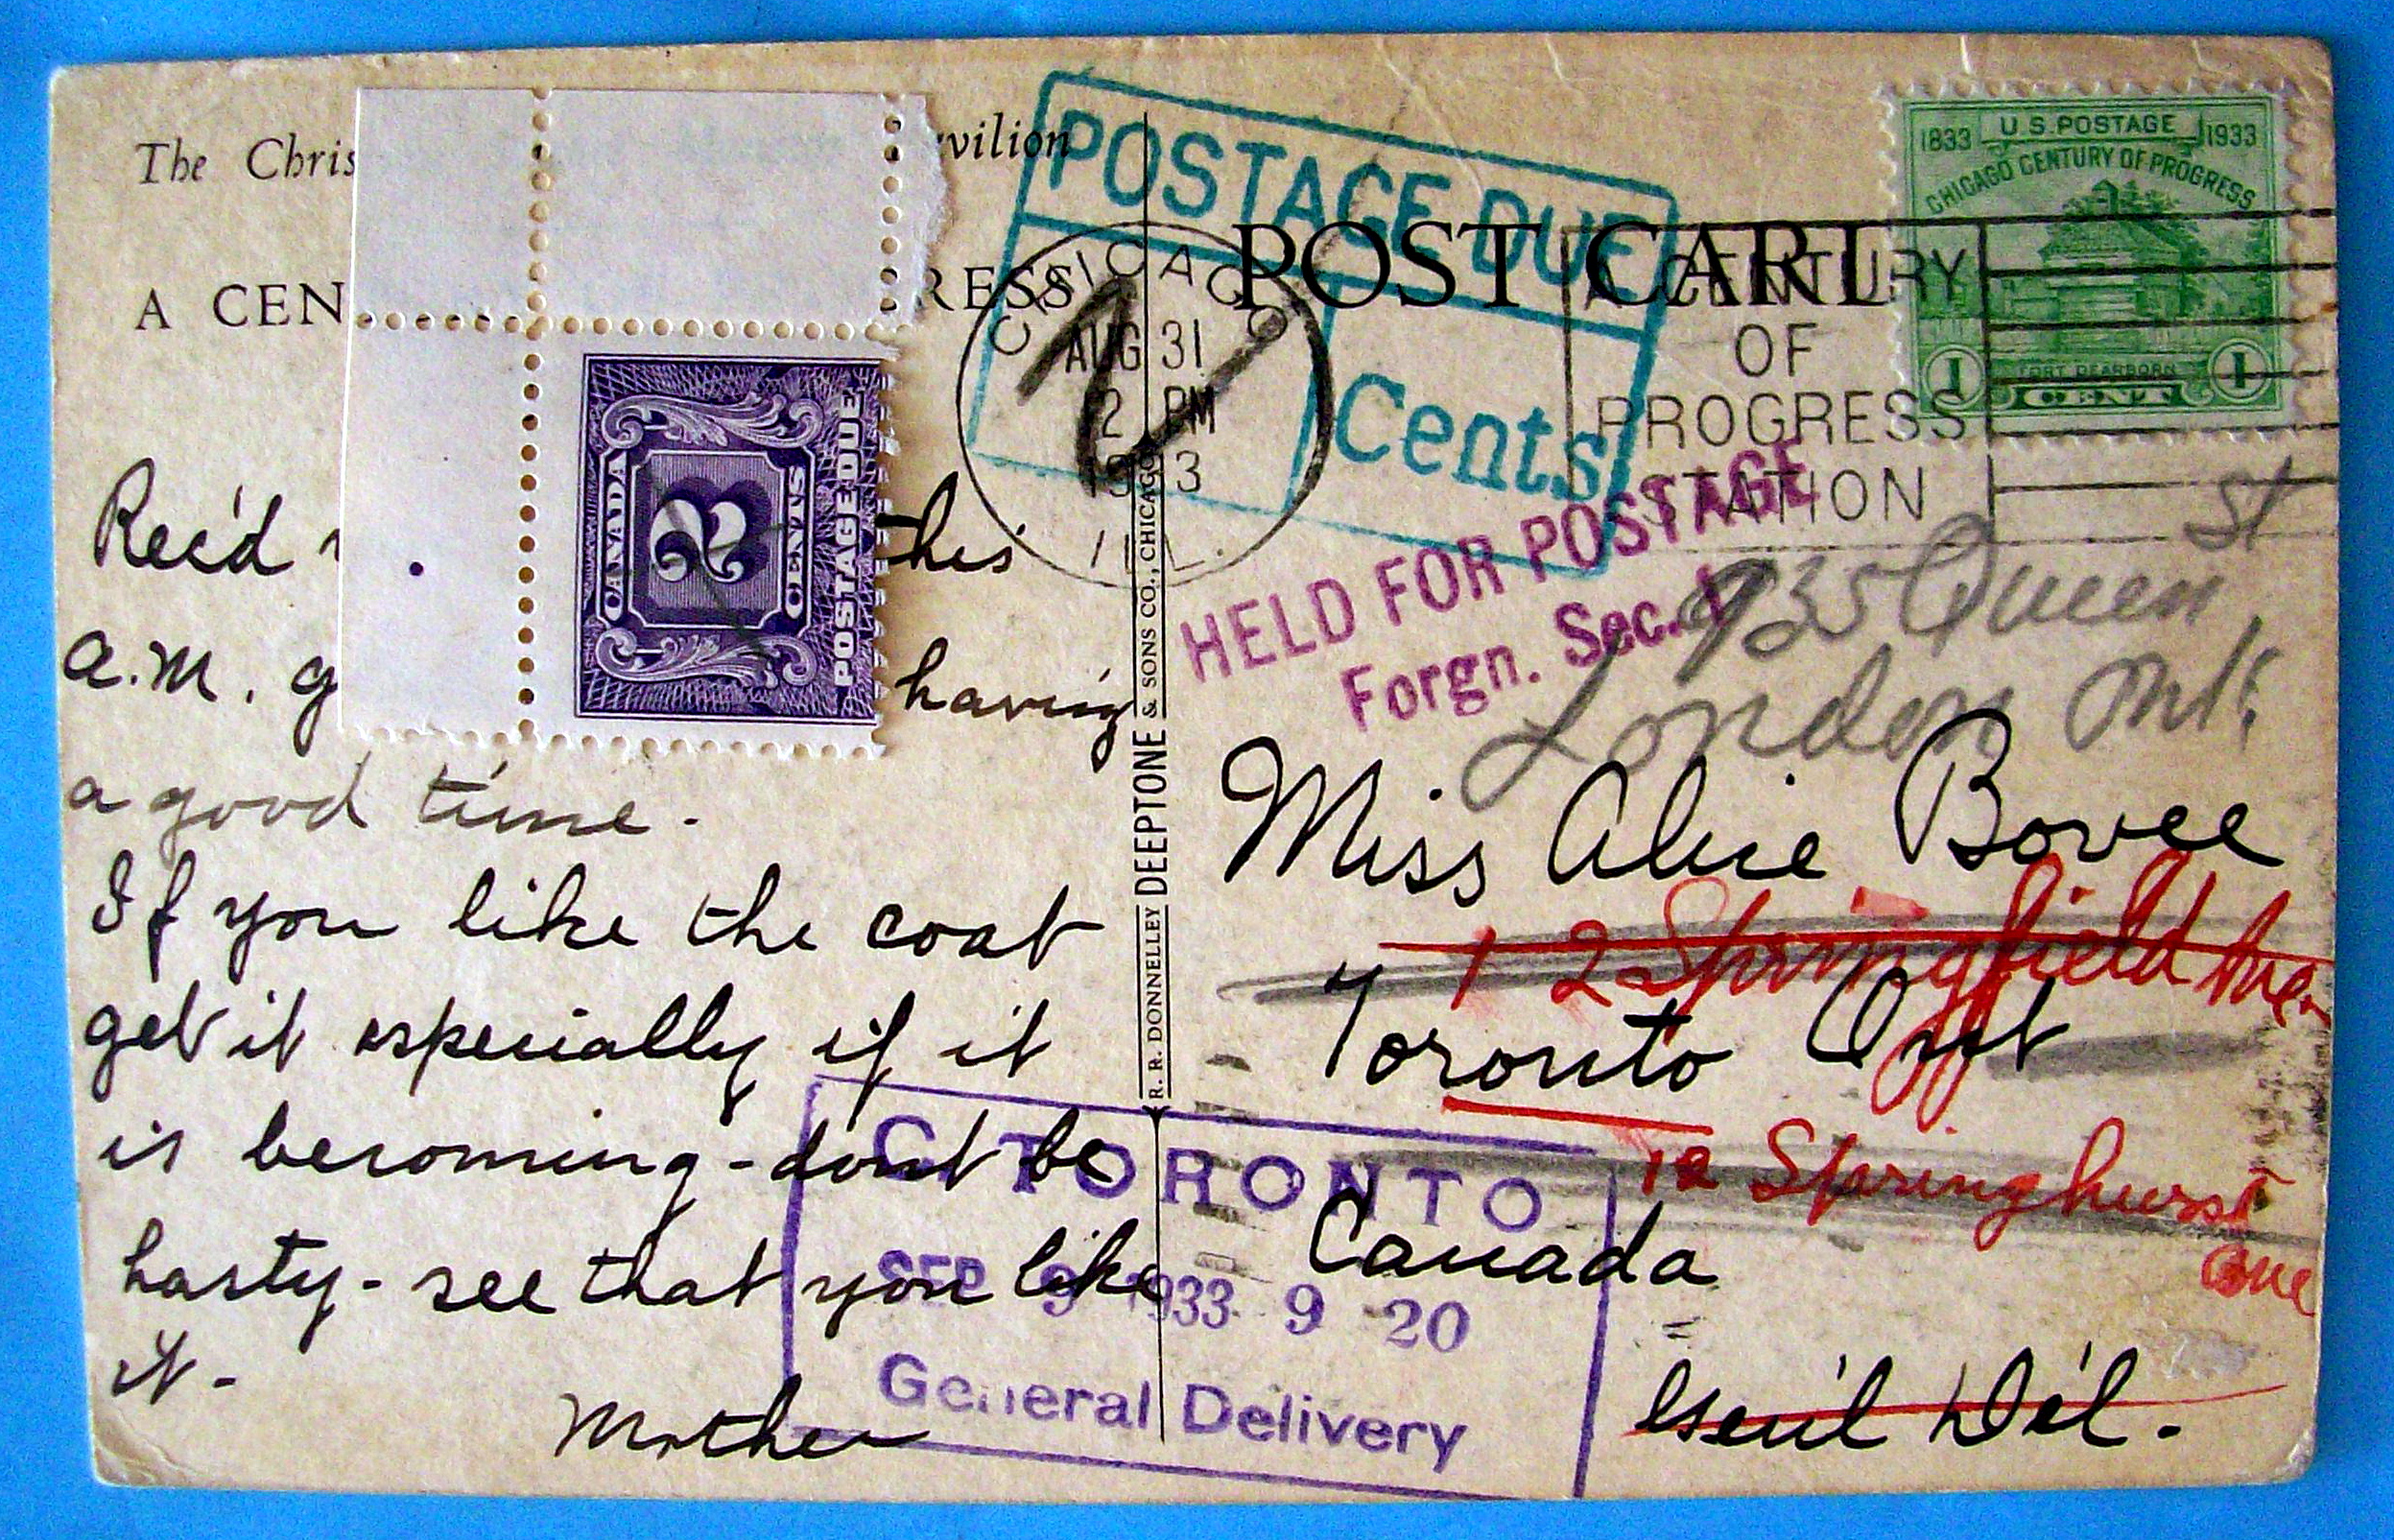 The Chris vilion
A CEN RESS
Rec'd this
a.m. having
a good time.
If you like the coat
get it especially if it
is becoming - dont be
hasty - see that you like
it -
Mother
CANADA
2
CENTS
POSTAGE DUE
R. R. DONNELLEY DEEPTONE & SONS CO., CHICAGO
POSTAGE DUE
2 Cents
CHICAGO
AUG 31
2 PM
19 3
ILL.
POST CARD
A CENTURY
OF
PROGRESS
STATION
1833 U.S. POSTAGE 1933
CHICAGO CENTURY OF PROGRESS
FORT DEARBORN
1 CENT 1
HELD FOR POSTAGE
Forgn. Sec. 1
935 Queen St
London Ont.
Miss Alice Bovee
12 Springfield Ave.
Toronto Ont
12 Springhurst
ave
Canada
Gen'l Del.
C TORONTO
SEP 9 1933 9 20
General Delivery